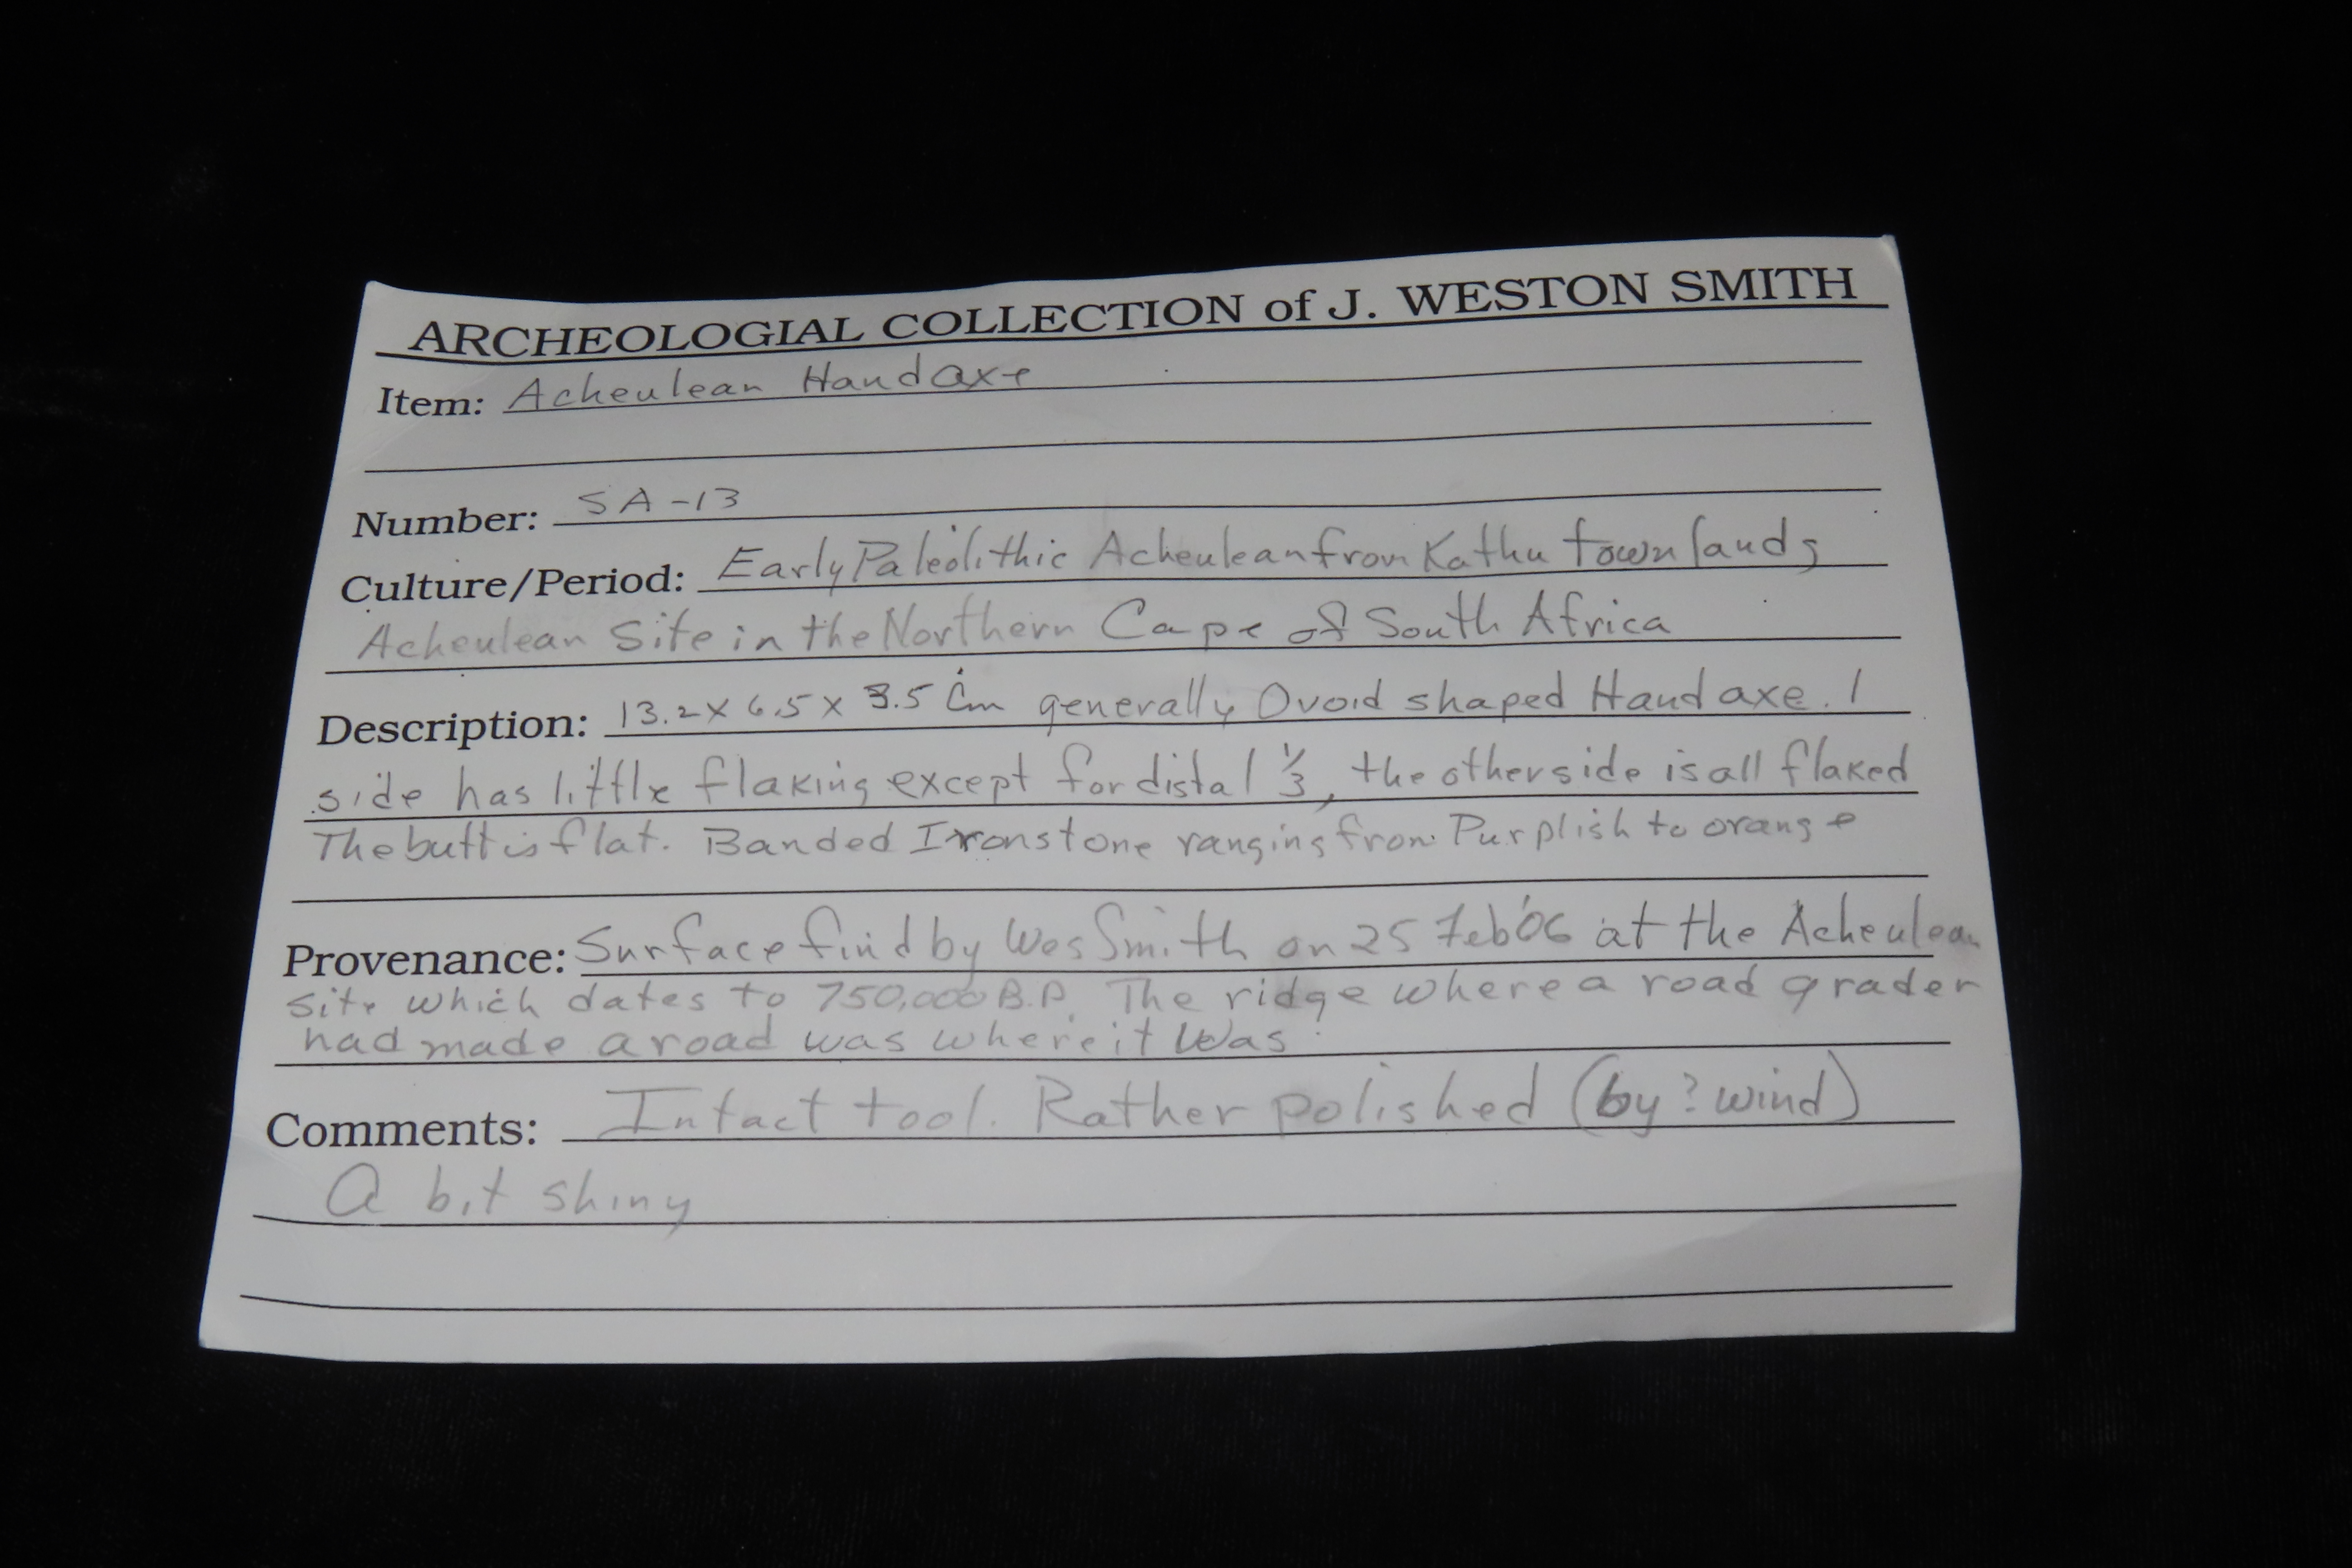 ARCHEOLOGIAL COLLECTION of J. WESTON SMITH
Item: Acheulean Handaxe
Number: SA-13
Culture/Period: Early Paleolithic Acheulean from Kathu Townlands
Acheulean Site in the Northern Cape of South Africa
Description: 13.2 x 6.5 x 3.5 cm generally Ovoid shaped Handaxe. 1
side has little flaking except for distal 1/3, the other side is all flaked
The butt is flat. Banded Ironstone ranging from Purplish to orange
Provenance: Surface find by Wes Smith on 25 Feb '06 at the Acheulean
site which dates to 750,000 B.P. The ridge where a road grader
had made a road was where it was.
Comments: Intact tool. Rather polished (by ? wind)
A bit shiny